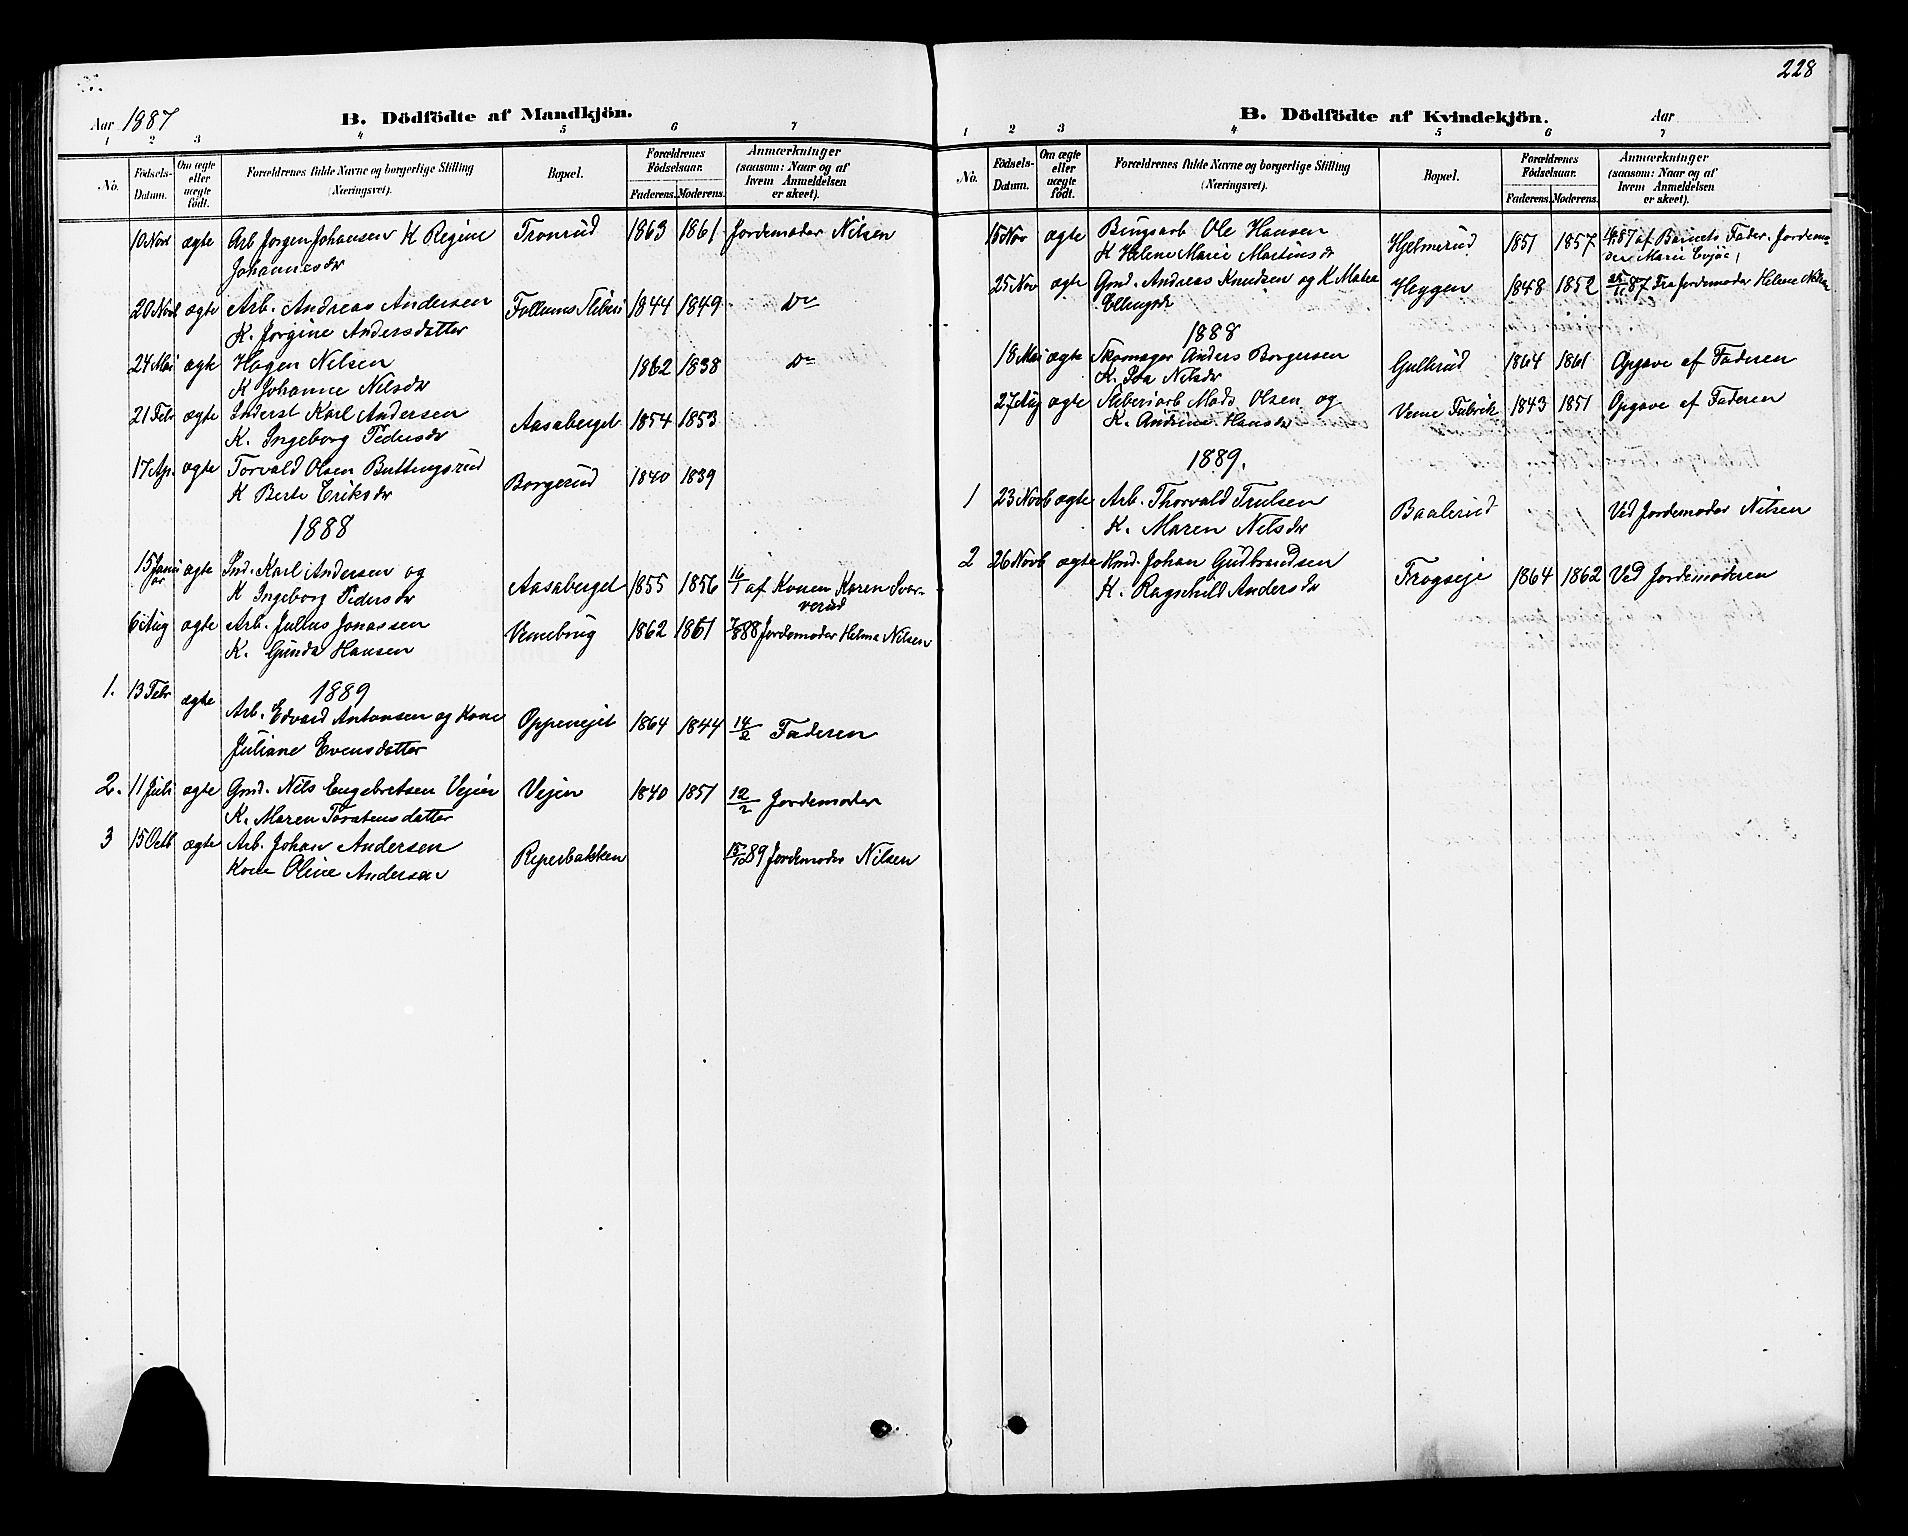 Aar 1887
B. Dödfödte af Mandkjön.
1 2 3 4 5 6 7
No.
Födsels-Datum.
Om ægte eller uægte födt.
Forældrenes fulde Navne og borgerlige Stilling (Næringsvei).
Bopæl.
Forældrenes Födselsaar.
Faderens. Moderens.
Anmærkninger (saasom: Naar og af hvem Anmeldelsen er skeet).
10 Novb ægte Arb Jørgen Johansen K Regine Tronrud 1863 1861 Jordemoder Nilsen
Johannesdr
20 Novb ægte Arb. Andreas Andersen Follums Sliberi 1844 1849 Do
K. Jørgine Andersdatter
24 Mai ægte Hagen Nilsen 1862 1838 Do
K Johanne Nilsdr
21 Febr ægte Inderst Karl Andersen Aasaberget 1854 1853
K. Ingeborg Pedersdr
17 Ap. ægte Torvald Olsen Buttingsrud Borgerud 1840 1839
K Berte Eriksdr
1888
15 Januar ægte Ind. Karl Andersen og Aasaberget 1855 1856 16/1 af Konen Karen Svar-
K Ingeborg Pedersdr verud
6 Aug ægte Arb. Julius Jonassen Venebrug 1862 1861 7/8 88 Jordemoder Helma Nilsen
K. Gunda Hansen
1889
1. 13 Febr ægte Arb. Edvard Antonsen og Kone Oppenejet 1864 1844 14/2 Faderen
Juliane Evensdatter
2. 11 Juli ægte Grnd. Nils Engebretsen Vejen Vejen 1840 1851 12/2 Jordemoder
K. Maren Torstensdatter
3 15 Octb ægte Arb. Johan Andersen Reperbakken 15/10 89 Jordemoder Nilsen
Kone Oline Andersen
228
B. Dödfödte af Kvindekjön.
Aar
1 2 3 4 5 6 7
No.
Födsels-Datum.
Om ægte eller uægte födt.
Forældrenes fulde Navne og borgerlige Stilling (Næringsvei).
Bopæl.
Forældrenes Födselsaar.
Faderens. Moderens.
Anmærkninger (saasom: Naar og af hvem Anmeldelsen er skeet).
15 Nov ægte Brugsarb Ole Hansen Hjelmerud 1851 1857 87 af Barnets Fader. Jordemo-
K Helene Marie Martinsdr der Marie
25 Nov ægte Grnd. Andreas Knudsen og K Mathea Heggen 1848 1852 26/11 87 Fra Jordemoder Helene Nilsen
Ellingsdr
1888
18 Mai ægte Skomager Anders Borgersen Gulerud 1864 1861 Opgave af Faderen
K. Ida Nilsdr
27 Aug ægte Sliberiarb Mads Olsen og Veme Fabrik 1843 1851 Opgave af Faderen
K. Andrine Hansdr
1889.
1 23 Novb ægte Arb. Thorvald Trulsen Baalerud Ved Jordemoder Nilsen
K. Maren Nilsdr
2 26 Novb ægte Hmd. Johan Gudbrandsen Frogseje 1864 1862 Ved Jordemoderen
K. Ragnhild Andersdr